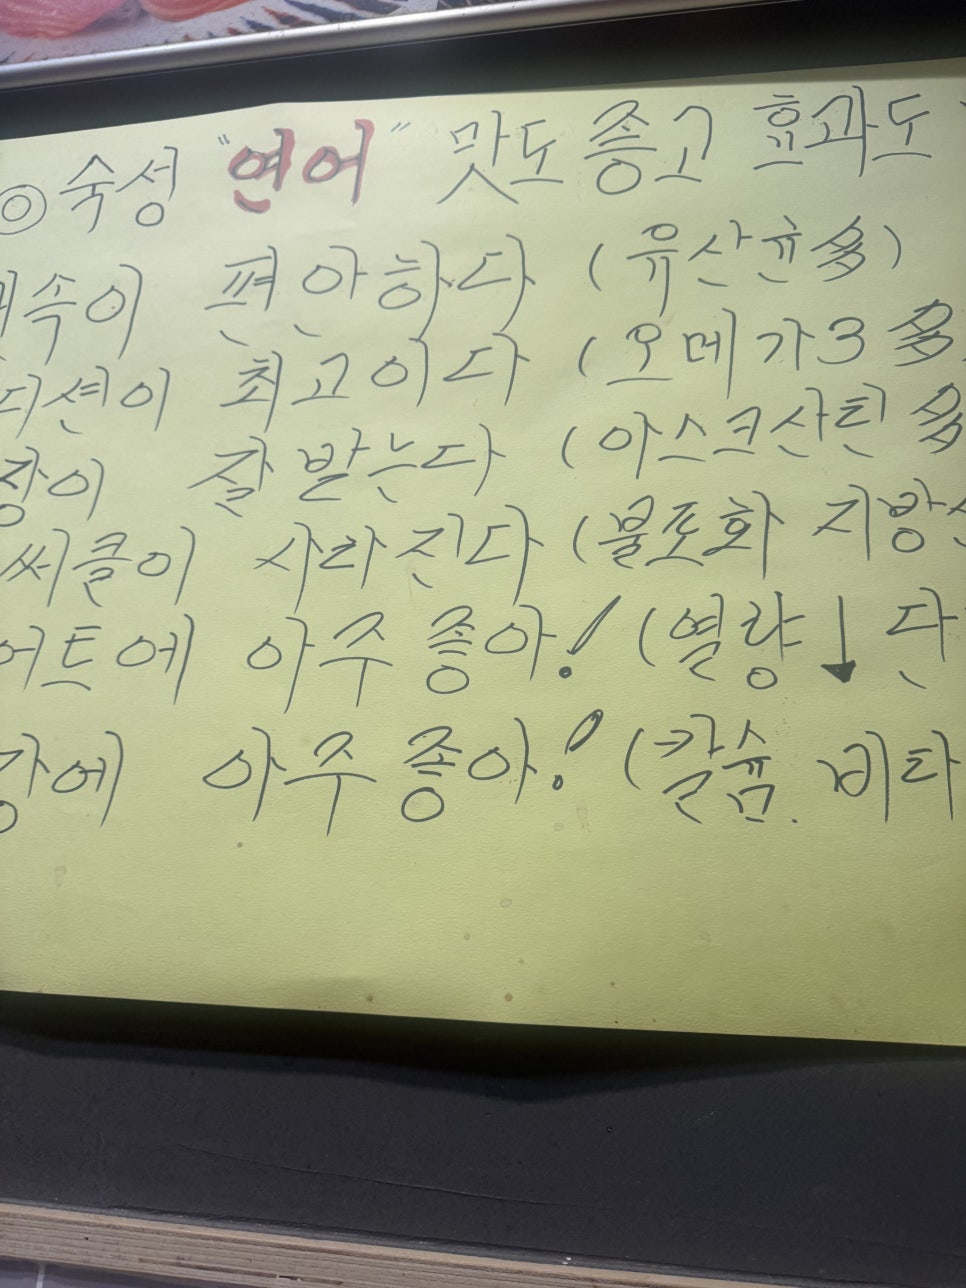 ◎숙성 "연어" 맛도 좋고 효과도
속이 편안하다 (유산균多)
디션이 최고이다 (오메가3 多
장이 잘 받는다 (아스크산틴 多
써클이 사라진다 (불포화 지방산
어트에 아주 좋아! (열량↓ 단
강에 아주 좋아! (칼슘. 비타